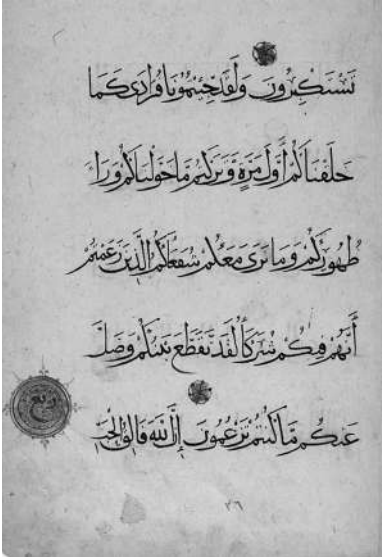 تَسْتَكْبِرُونَ وَلَقَدْ جِئْتُمُونَا فُرَادَى كَمَا
خَلَقْنَاكُمْ أَوَّلَ مَرَّةٍ وَتَرَكْتُمْ مَا خَوَّلْنَاكُمْ وَرَاءَ
ظُهُورِكُمْ وَمَا نَرَى مَعَكُمْ شُفَعَاءَكُمُ الَّذِينَ زَعَمْتُمْ
أَنَّهُمْ فِيكُمْ شُرَكَاءُ لَقَدْ تَقَطَّعَ بَيْنَكُمْ وَضَلَّ
ربع
عَنْكُمْ مَا كُنْتُمْ تَزْعُمُونَ إِنَّ اللَّهَ فَالِقُ الْحَبِّ
٢٦